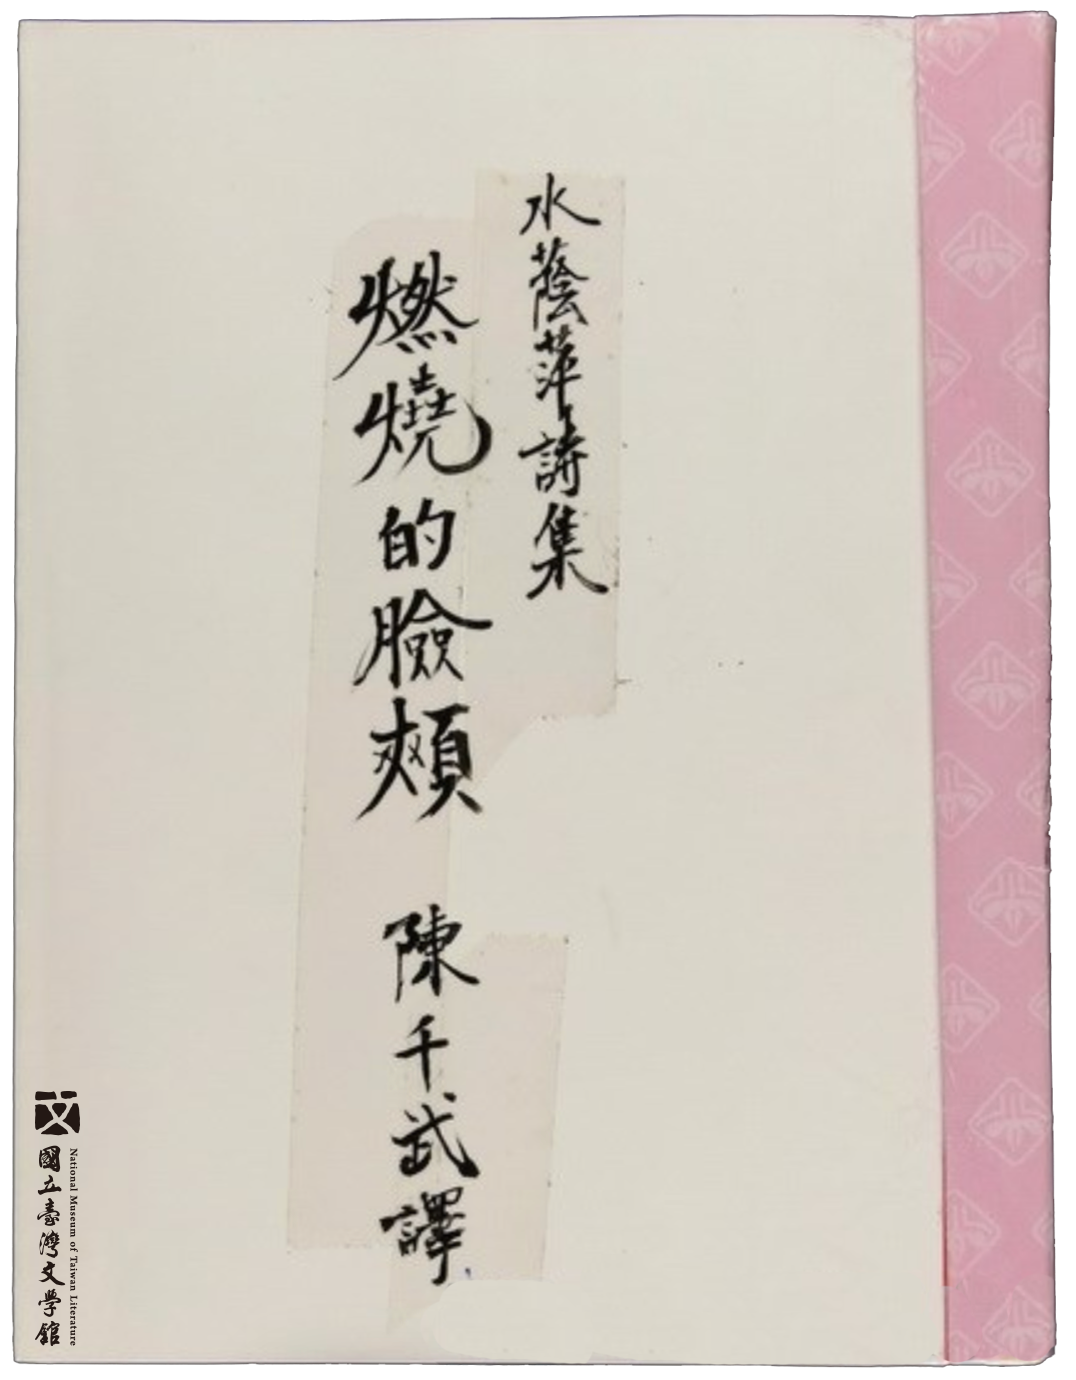 水蔭萍詩集
燃燒的臉頰
陳千武譯
國立臺灣文學館
National Museum of Taiwan Literature